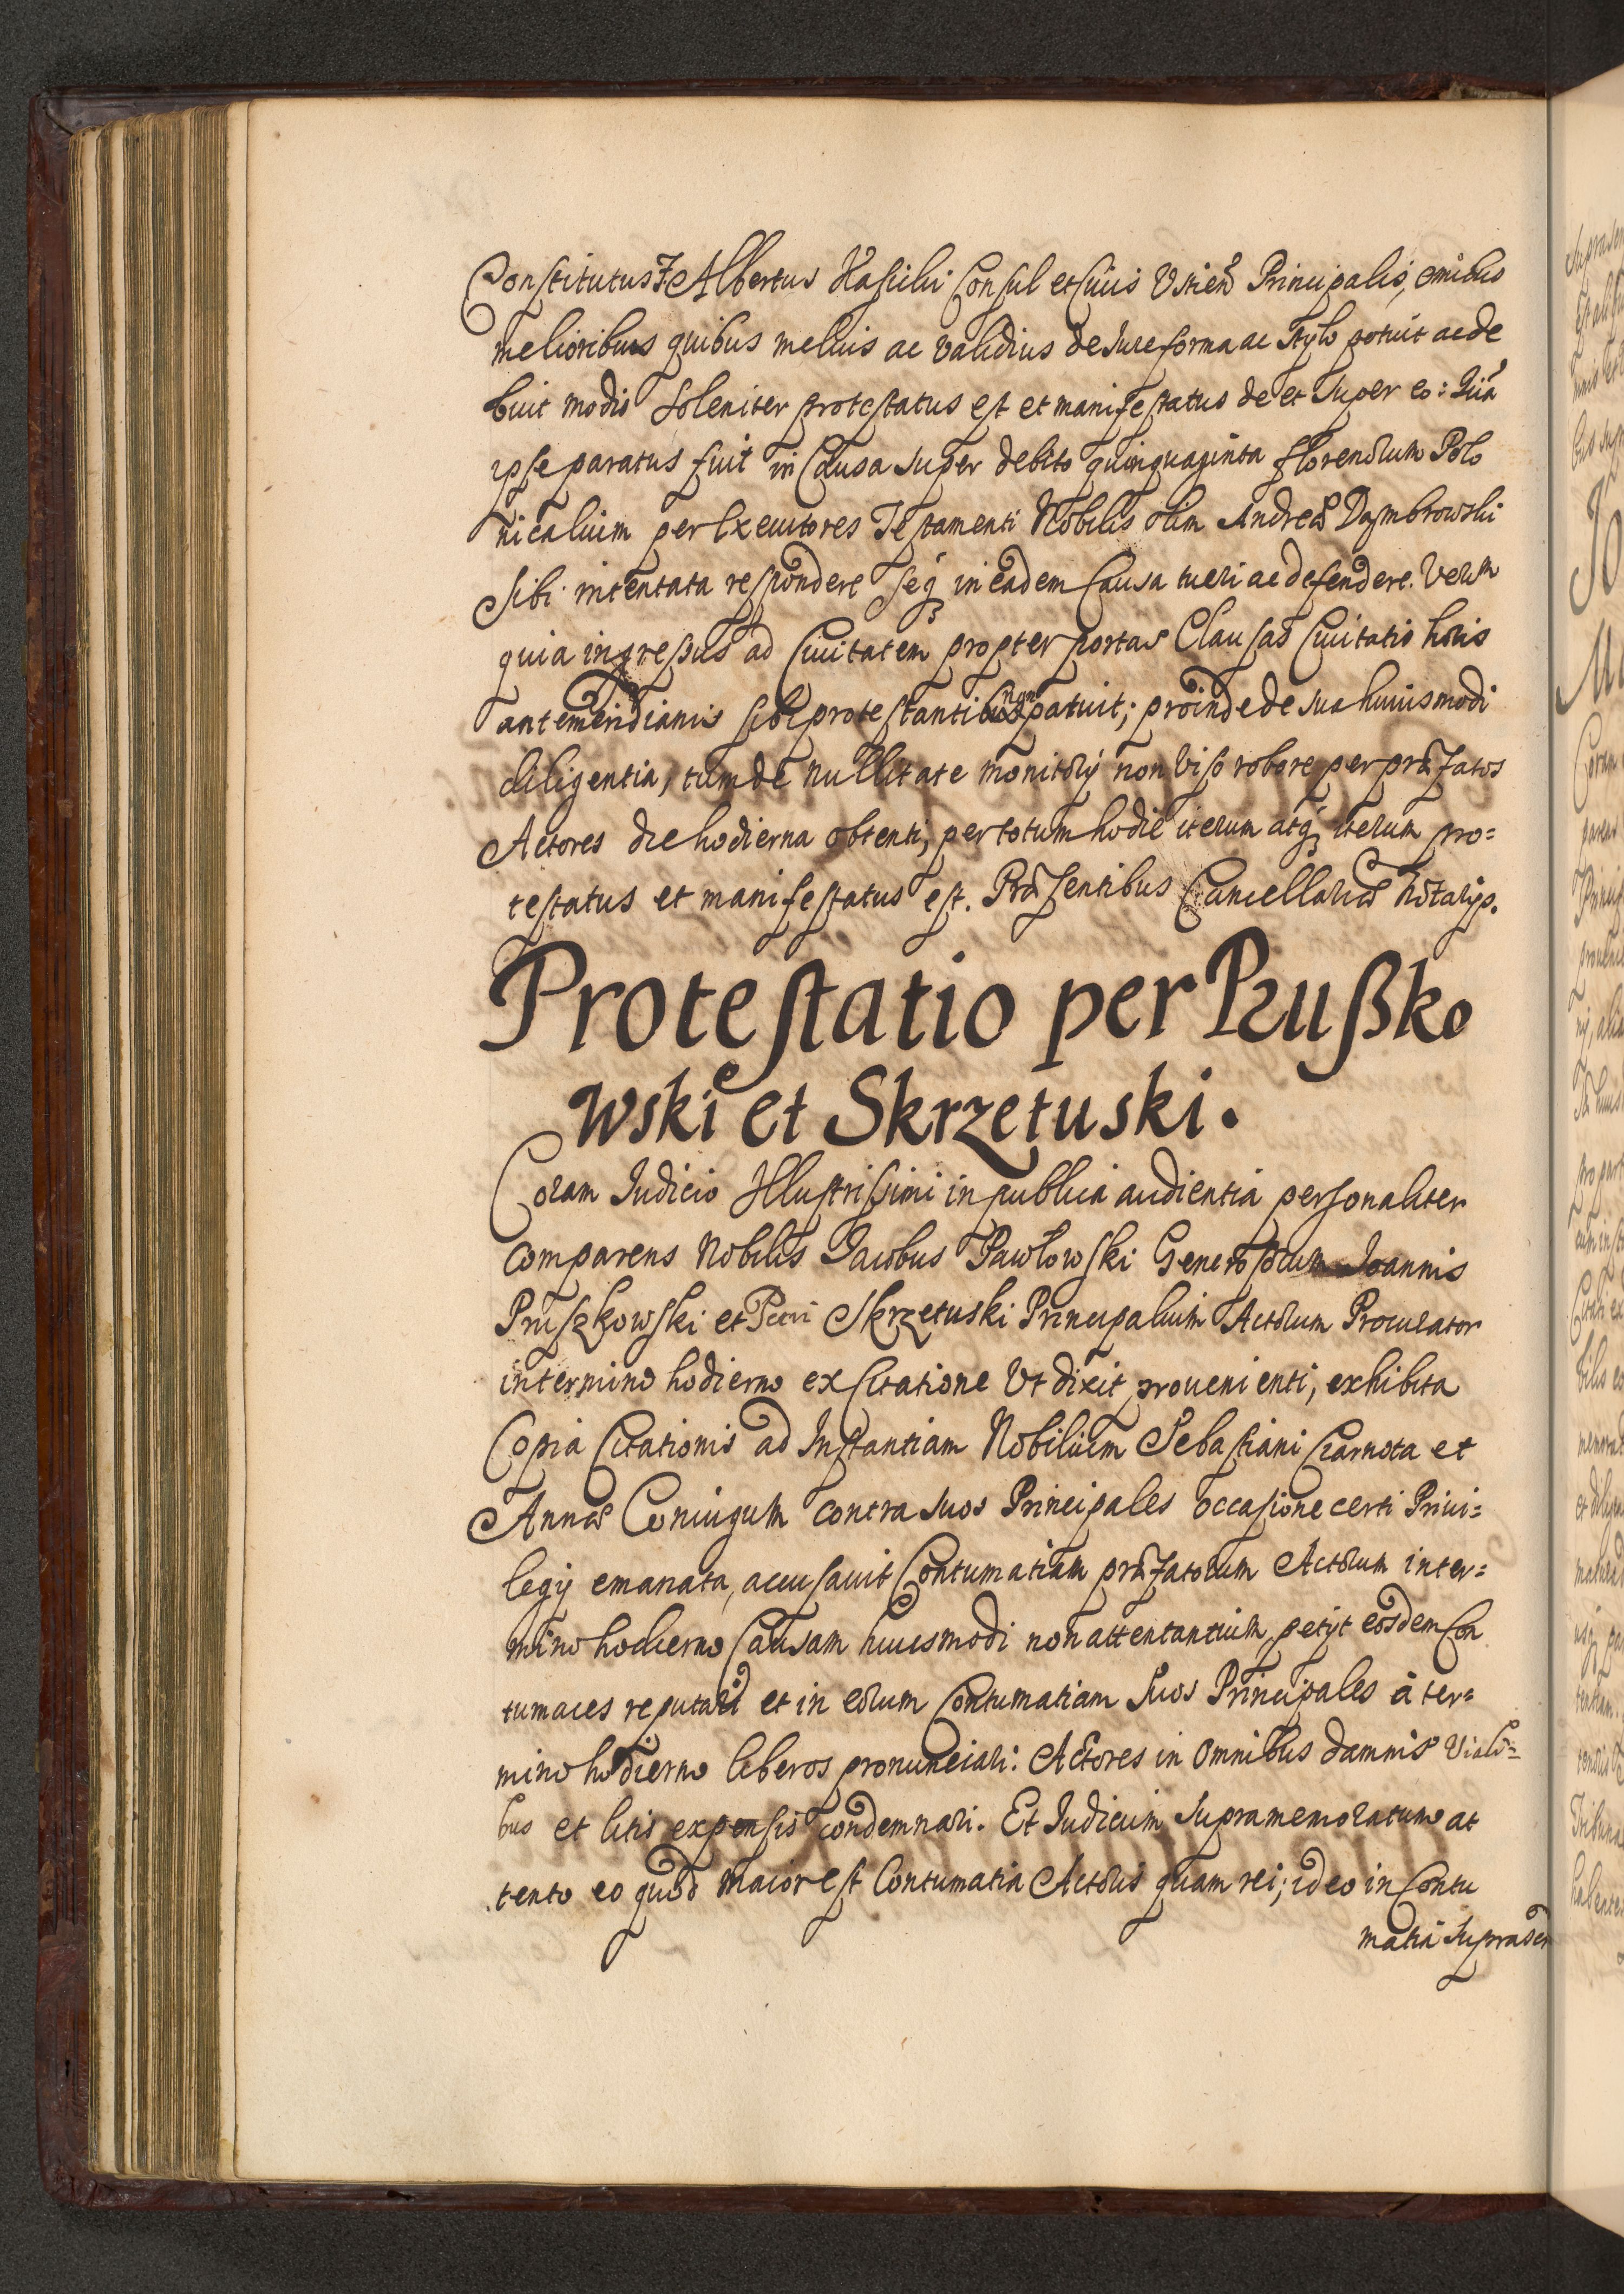 Constitutus F. Albertus Kascili Consul et Ciuis Vstien̄ Principalis, omibus
melioribus quibus melius ac validius de Jure forma ac stylo potuit ac de
buit modis soleniter protestatus est et manifestatus de et super eo: Quā
ipse paratus fuit in Causa super debito quinquaginta florenorum Polo
nicalium per Executores Testamenti Nobilis olim Andreæ Dąmbrowski
sibi intentata respondere seq; in eadem Causa tueri ac defendere. Verum
quia ingressus ad Ciuitatem propter portas Clausas Ciuitatis horis
antemeridianis sibi protestanti non patuit; proinde de sua huiusmodi
diligentia, tum de nullitate monitorij non viso robore per præfatos
Actores die hodierna obtenti, per totum hodie iterum atq; iterum pro=
testatus et manifestatus est. Præsentibus Cancellariæ Notarijs.
Protestatio per Prußko
wski et Skrzetuski.
Coram Judicio Illustrissimi in publica audientia personaliter
comparens Nobilis Jacobus Pawłowski Generosorum Joannis
Pruszkowski et Petri Skrzetuski Principalium Actorum Procurator
in termino hodierno ex Citatione Vt dixit proueni enti, exhibita
Copia Citationis ad Instantiam Nobilium Sebastiani Czarnota et
Annæ Coniugum contra suos Principales occasione certi Priui=
legij emanata, accusauit Contumatiam præfatorum Actorum in ter=
mino hodierno Causam huiusmodi non attentantium, petijt eosdem Con
tumaces reputari et in eorum Contumatiam suos Principales à ter=
mino hodierno liberos pronunciari: Actores in omnibus damnis viali=
bus et litis expensis condemnari. Et Judicium supramemoratum at
tento eo quod maior est Contumatia Actoris quam rei; ideo in Contu
matia supraser